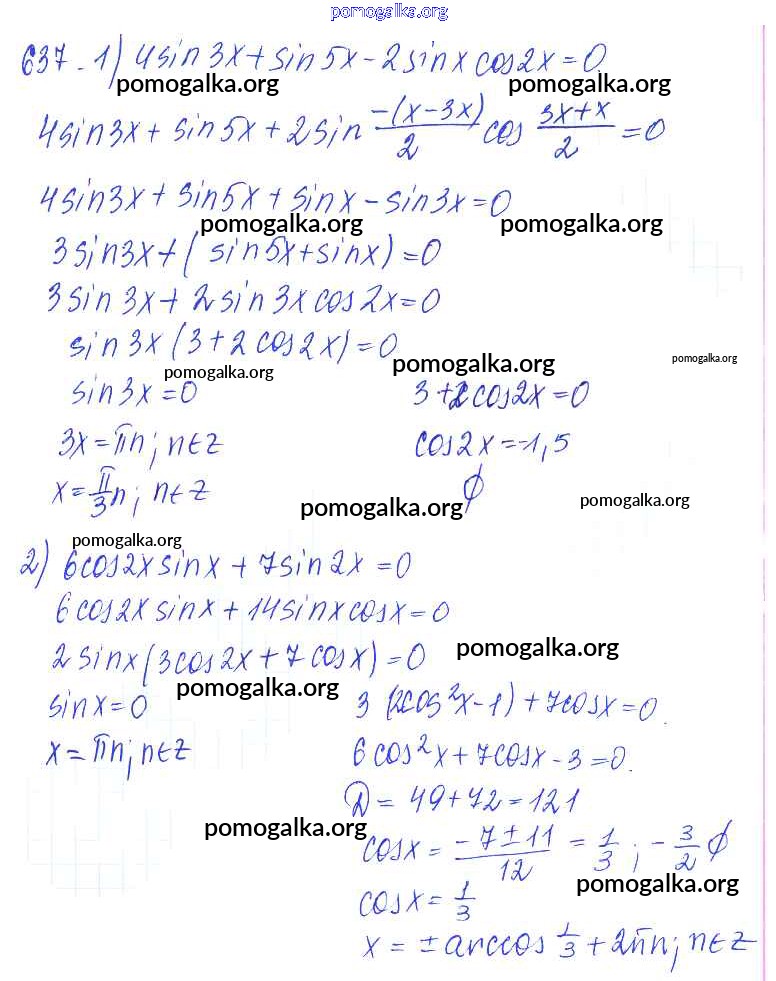 pomogalka.org
637. 1) 4sin3x + sin5x - 2sinx cos2x = 0
pomogalka.org pomogalka.org
4sin3x + sin5x + 2sin -(x-3x)/2 cos 3x+x/2 = 0
4sin3x + sin5x + sinx - sin3x = 0
pomogalka.org pomogalka.org
3sin3x + (sin5x + sinx) = 0
3sin3x + 2sin3x cos2x = 0
sin3x (3 + 2cos2x) = 0
pomogalka.org pomogalka.org pomogalka.org
sin3x = 0 3 + 2cos2x = 0
3x = πn; n∈Z cos2x = -1,5
x = π/3 n; n∈Z ∅
pomogalka.org pomogalka.org
pomogalka.org
2) 6cos2x sinx + 7sin2x = 0
6cos2x sinx + 14sinx cosx = 0
2sinx (3cos2x + 7cosx) = 0
pomogalka.org
pomogalka.org
sinx = 0 3 (2cos²x - 1) + 7cosx = 0.
x = πn; n∈Z 6cos²x + 7cosx - 3 = 0.
D = 49 + 72 = 121
pomogalka.org
cosx = -7 ± 11/12 = 1/3; -3/2 ∅
pomogalka.org
cosx = 1/3
x = ± arccos 1/3 + 2πn; n∈Z